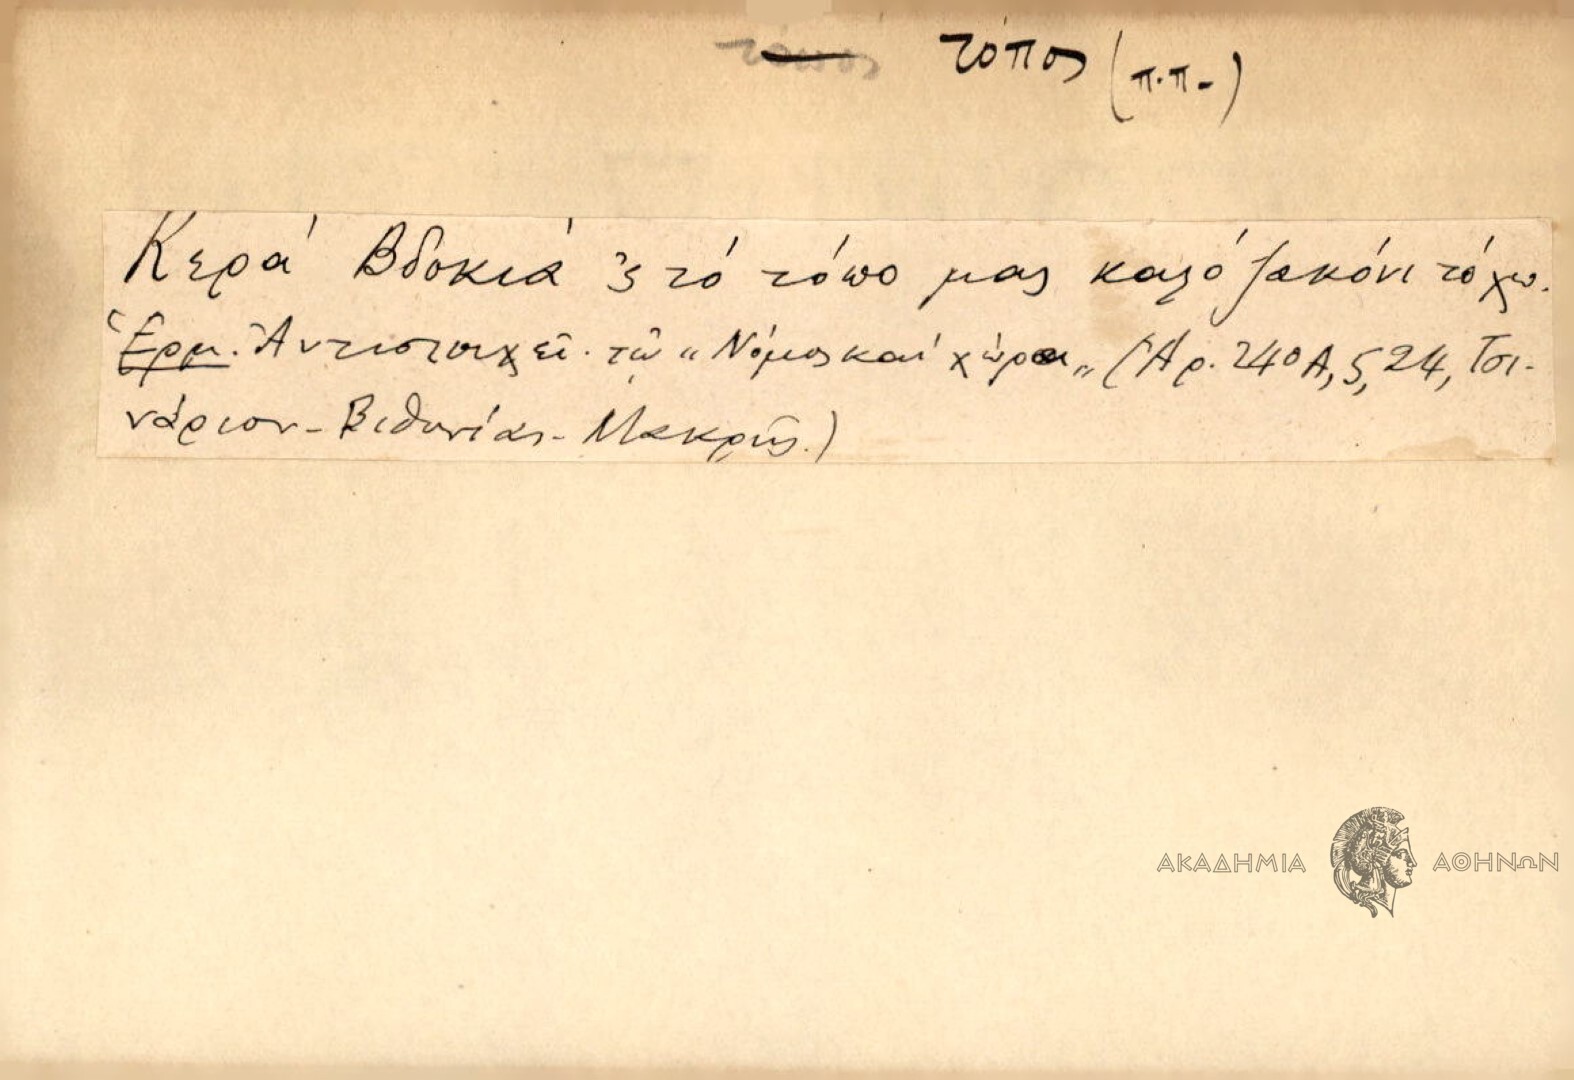 τόπος τόπος (π.π.)
Κερά Βδοκιά 'ς τό τόπο μας καλό ζακόνι τόχω.
Ἑρμ. Ἀντιστοιχεῖ τῷ „Νόμος καί χώρα„ (Ἀρ. 240 Α, 5, 24, Τσι-
νάριον - Βιθυνίας - Μακρῆς.)
ΑΚΑΔΗΜΙΑ ΑΘΗΝΩΝ